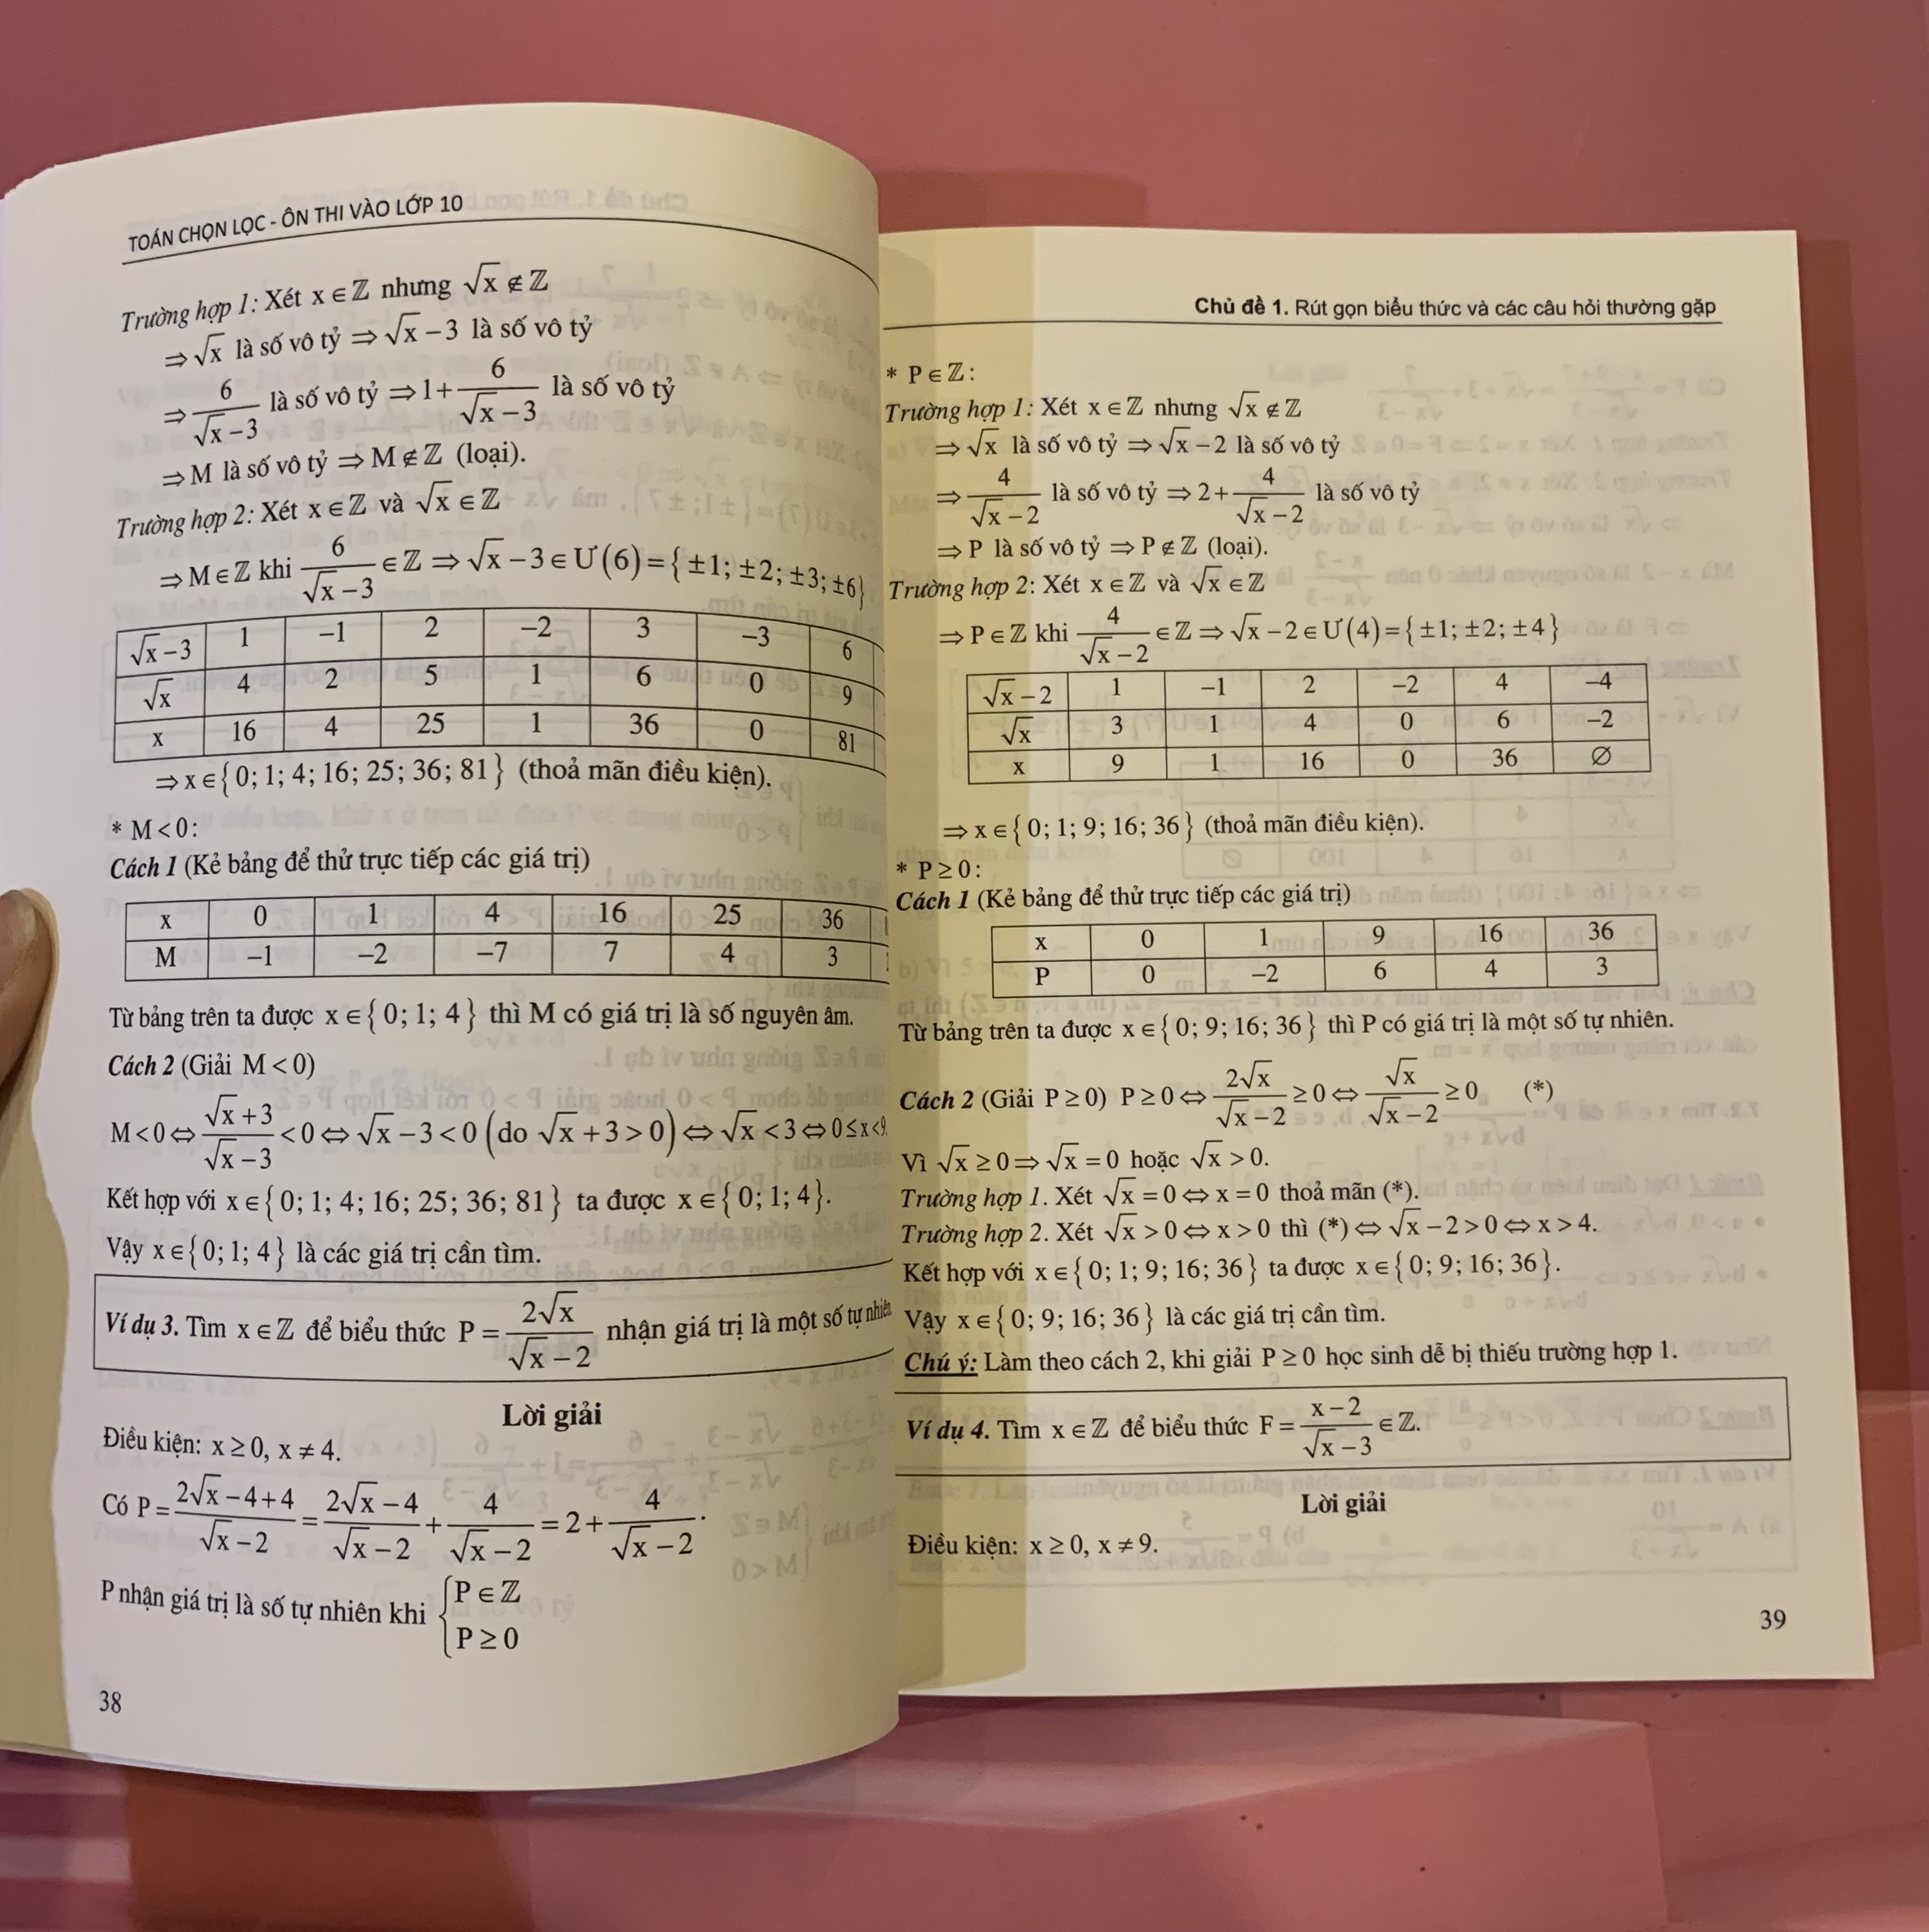 TOÁN CHỌN LỌC - ÔN THI VÀO LỚP 10
Trường hợp 1: Xét x ∈ ℤ nhưng √x ∉ ℤ
⇒ √x là số vô tỷ ⇒ √x − 3 là số vô tỷ
⇒ 6/(√x − 3) là số vô tỷ ⇒ 1 + 6/(√x − 3) là số vô tỷ
⇒ M là số vô tỷ ⇒ M ∉ ℤ (loại).
Trường hợp 2: Xét x ∈ ℤ và √x ∈ ℤ
⇒ M ∈ ℤ khi 6/(√x − 3) ∈ ℤ ⇒ √x − 3 ∈ Ư(6) = {±1; ±2; ±3; ±6}
√x − 3 1 −1 2 −2 3 −3 6
√x 4 2 5 1 6 0 9
x 16 4 25 1 36 0 81
⇒ x ∈ {0; 1; 4; 16; 25; 36; 81} (thoả mãn điều kiện).
* M < 0:
Cách 1 (Kẻ bảng để thử trực tiếp các giá trị)
x 0 1 4 16 25 36
M −1 −2 −7 7 4 3
Từ bảng trên ta được x ∈ {0; 1; 4} thì M có giá trị là số nguyên âm.
Cách 2 (Giải M < 0)
M < 0 ⇔ (√x + 3)/(√x − 3) < 0 ⇔ √x − 3 < 0 (do √x + 3 > 0) ⇔ √x < 3 ⇔ 0 ≤ x < 9.
Kết hợp với x ∈ {0; 1; 4; 16; 25; 36; 81} ta được x ∈ {0; 1; 4}.
Vậy x ∈ {0; 1; 4} là các giá trị cần tìm.
Ví dụ 3. Tìm x ∈ ℤ để biểu thức P = 2√x/(√x − 2) nhận giá trị là một số tự nhiên
Lời giải
Điều kiện: x ≥ 0, x ≠ 4.
Có P = (2√x − 4 + 4)/(√x − 2) = (2√x − 4)/(√x − 2) + 4/(√x − 2) = 2 + 4/(√x − 2).
P nhận giá trị là số tự nhiên khi { P ∈ ℤ
P ≥ 0
38
Chủ đề 1. Rút gọn biểu thức và các câu hỏi thường gặp
* P ∈ ℤ:
Trường hợp 1: Xét x ∈ ℤ nhưng √x ∉ ℤ
⇒ √x là số vô tỷ ⇒ √x − 2 là số vô tỷ
⇒ 4/(√x − 2) là số vô tỷ ⇒ 2 + 4/(√x − 2) là số vô tỷ
⇒ P là số vô tỷ ⇒ P ∉ ℤ (loại).
Trường hợp 2: Xét x ∈ ℤ và √x ∈ ℤ
⇒ P ∈ ℤ khi 4/(√x − 2) ∈ ℤ ⇒ √x − 2 ∈ Ư(4) = {±1; ±2; ±4}
√x − 2 1 −1 2 −2 4 −4
√x 3 1 4 0 6 −2
x 9 1 16 0 36 ∅
⇒ x ∈ {0; 1; 9; 16; 36} (thoả mãn điều kiện).
* P ≥ 0:
Cách 1 (Kẻ bảng để thử trực tiếp các giá trị)
x 0 1 9 16 36
P 0 −2 6 4 3
Từ bảng trên ta được x ∈ {0; 9; 16; 36} thì P có giá trị là một số tự nhiên.
Cách 2 (Giải P ≥ 0) P ≥ 0 ⇔ 2√x/(√x − 2) ≥ 0 ⇔ √x/(√x − 2) ≥ 0 (*)
Vì √x ≥ 0 ⇒ √x = 0 hoặc √x > 0.
Trường hợp 1. Xét √x = 0 ⇔ x = 0 thoả mãn (*).
Trường hợp 2. Xét √x > 0 ⇔ x > 0 thì (*) ⇔ √x − 2 > 0 ⇔ x > 4.
Kết hợp với x ∈ {0; 1; 9; 16; 36} ta được x ∈ {0; 9; 16; 36}.
Vậy x ∈ {0; 9; 16; 36} là các giá trị cần tìm.
Chú ý: Làm theo cách 2, khi giải P ≥ 0 học sinh dễ bị thiếu trường hợp 1.
Ví dụ 4. Tìm x ∈ ℤ để biểu thức F = (x − 2)/(√x − 3) ∈ ℤ.
Lời giải
Điều kiện: x ≥ 0, x ≠ 9.
39